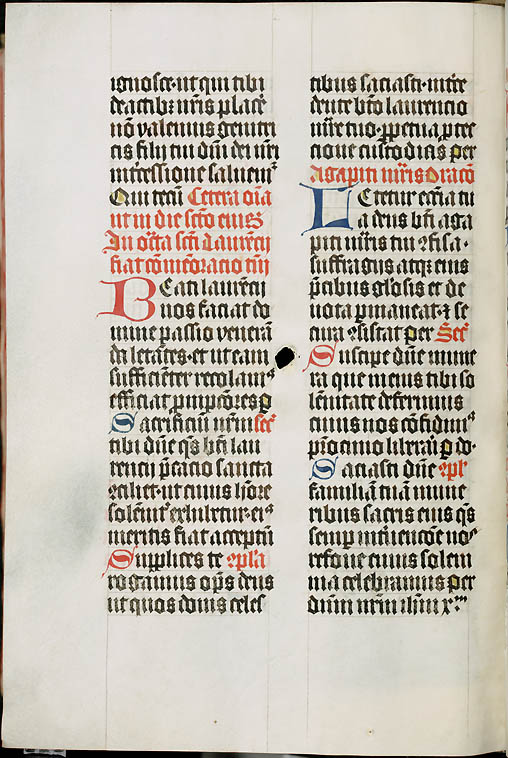 ignosce. ut qui tibi
de actibꝫ nr̄is placē
nō valemus genitri
cis filij tui dn̄i dei nr̄i
intercessione saluemʳ
Qui tecū Cetera oīa
ut in die scto eius
In octa scti Laurēcij
fiat cōmēoracio tm̄
Beati laurēcij
nos faciat do
mine passio venerā
da letātes. et ut eam
sufficiēter recolamꝰ
efficiat prōmpciores p
Sacrificiū nr̄m sec̄
tibi dn̄e qs̄ bt̄i lau
rencij p̄catio sancta
ꝯciliet. ut cuius hōre
solēnit᷑ exhibetur. eiꝰ
meritis fiat acceptū
Supplices te cplā
rogamus op̄s deus
ut quos donis celes
tibus saciasti. inter
cedente bt̄o laurencio
mr̄e tuo. ppetua ptec
tione custodias per
Agapiti mr̄is Oracō
Letetur eccīa tu
a deus bt̄i aga
piti mr̄is tui ꝯfisa.
suffragijs atqꝫ eius
p̄cibus gl̄osis et de
uota pmaneat. ⁊ se
cura ꝯsistat per Sec̄
Suscipe dn̄e mune
ra que in eius tibi so
lēnitate deferimus
cuius nos cōfidimꝰ
pr̄ocinio liberari p do.
Saciasti dn̄e cpl̄
familiā tuā mune
ribus sacris eius qs̄
semp int̄uencōe noˢ
refoue cuius solem
nia celebramus per
dn̄m nr̄m ihm̄ x